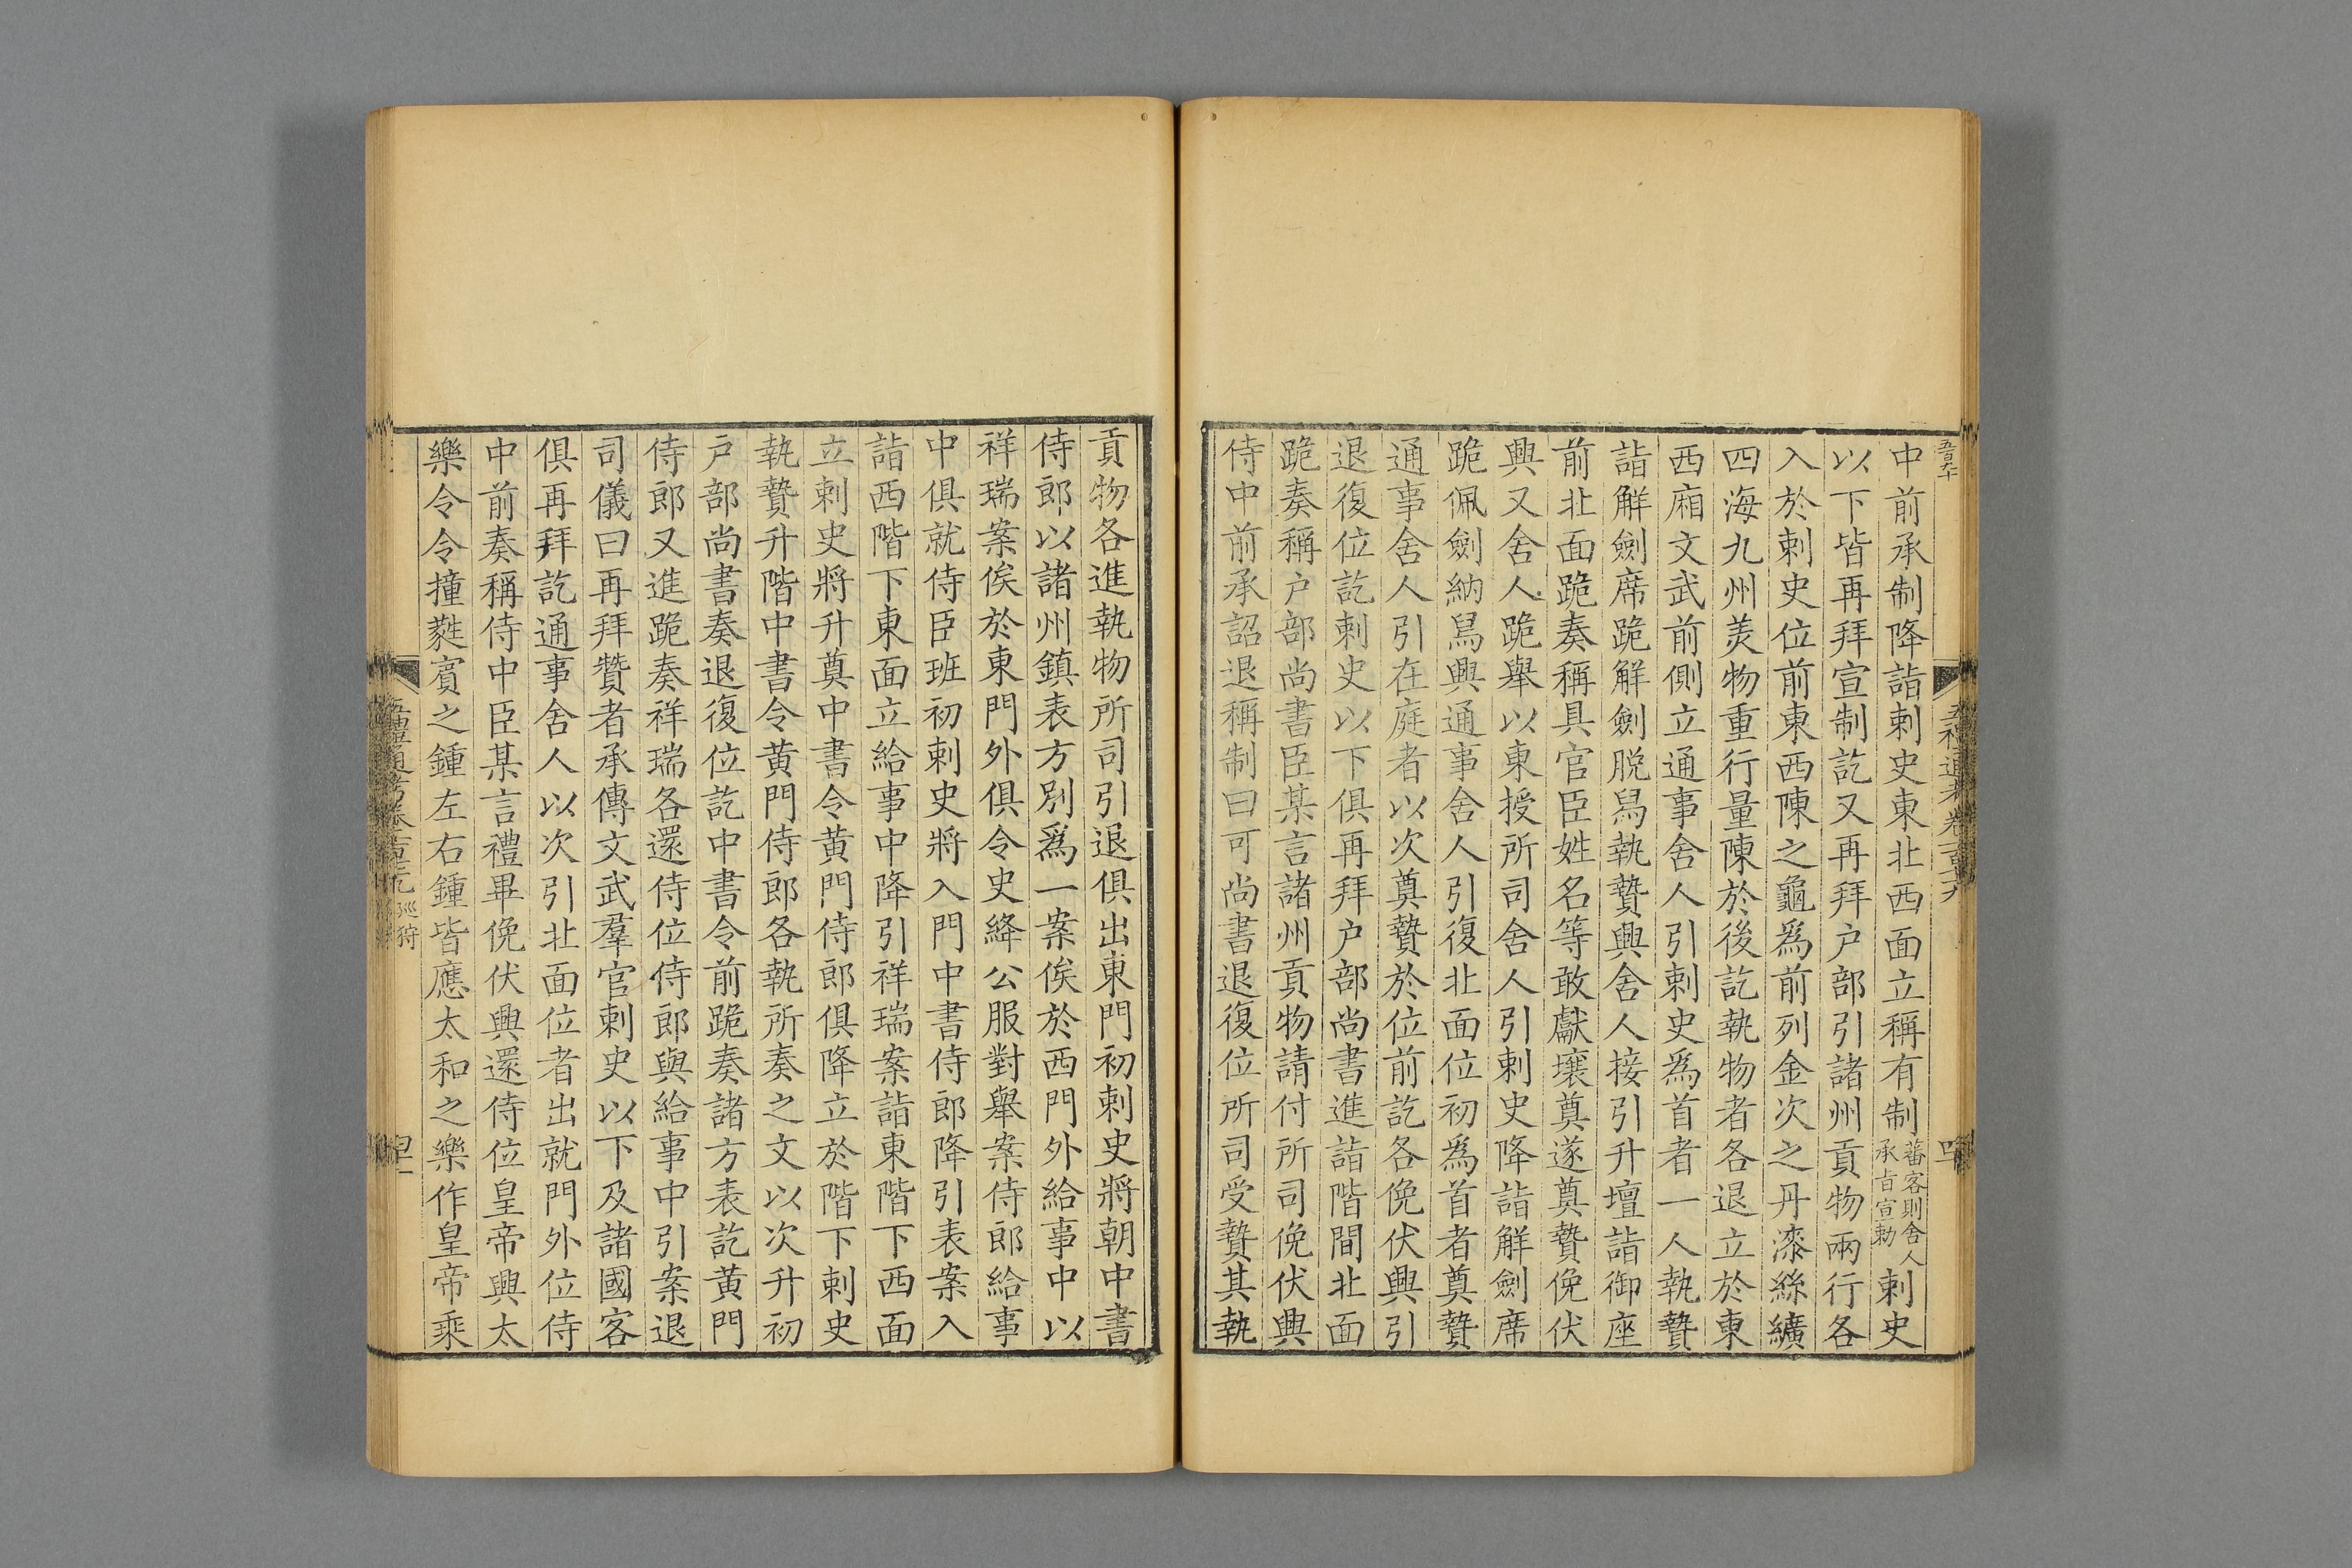 中前承制降詣刺史東北西面立稱有制蕃客則舍人承旨宣勅刺史
以下皆再拜宣制訖又再拜户部引諸州貢物兩行各
入於刺史位前東西陳之龜為前列金次之丹漆絲纊
四海九州美物重行量陳於後訖執物者各退立於東
西廂文武前側立通事舍人引刺史為首者一人執贄
詣解劍席跪解劍脫舄執贄興舍人接引升壇詣御座
前北面跪奏稱具官臣姓名等敢獻壤奠遂奠贄俛伏
興又舍人跪舉以東授所司舍人引刺史降詣解劍席
跪佩劍納舄興通事舍人引復北面位初為首者奠贄
通事舍人引在庭者以次奠贄於位前訖各俛伏興引
退復位訖刺史以下俱再拜户部尚書進詣階間北面
跪奏稱户部尚書臣某言諸州貢物請付所司俛伏興
侍中前承詔退稱制曰可尚書退復位所司受贄其執
貢物各進執物所司引退俱出東門初刺史將朝中書
侍郎以諸州鎮表方别爲一案俟於西門外給事中以
祥瑞案俟於東門外俱令史絳公服對舉案侍郎給事
中俱就侍臣班初刺史將入門中書侍郎降引表案入
詣西階下東面立給事中降引祥瑞案詣東階下西面
立刺史將升奠中書令黄門侍郎俱降立於階下刺史
執贄升階中書令黄門侍郎各執所奏之文以次升初
户部尚書奏退復位訖中書令前跪奏諸方表訖黄門
侍郎又進跪奏祥瑞各還侍位侍郎與給事中引案退
司儀曰再拜贊者承傳文武羣官刺史以下及諸國客
俱再拜訖通事舍人以次引北面位者出就門外位侍
中前奏稱侍中臣某言禮畢俛伏興還侍位皇帝興太
樂令令撞蕤賓之鍾左右鍾皆應太和之樂作皇帝乘
五禮通考卷一百七十九 巡狩 四十一